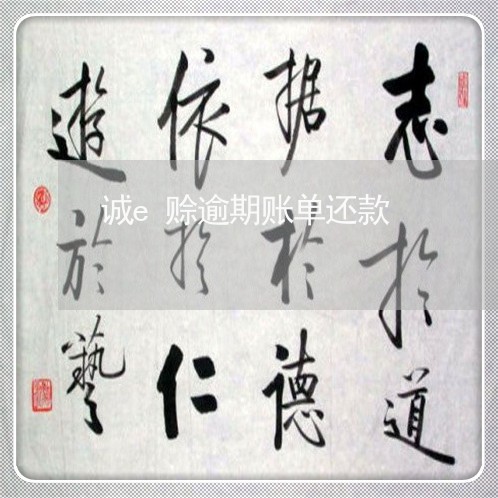 志於道
据於德
依於仁
遊於藝
诚e 赊逾期账单还款